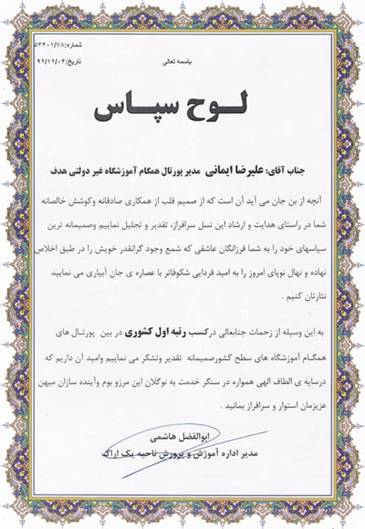 شماره: ۵۳۴۰۱/۷۸
باسمه تعالی
تاریخ: ۹۲/۱۲/۰۴
لوح سپاس
جناب آقای: علیرضا ایمانی مدیر پورتال همگام آموزشگاه غیر دولتی هدف
آنچه از بن جان می آید آن است که از صمیم قلب از همکاری صادقانه وکوشش خالصانه
شما در راستای هدایت و ارشاد این نسل سرافراز، تقدیر و تجلیل نماییم وصمیمانه ترین
سپاسهای خود را به شما فرزانگان عاشقی که شمع وجود گرانقدر خویش را در طبق اخلاص
نهاده و نهال نوپای امروز را به امید فردایی شکوفاتر با عصاره ی جان آبیاری می نمایید
نثارتان کنیم.
به این وسیله از زحمات جنابعالی درکسب رتبه اول کشوری در بین پورتال های
همگام آموزشگاه های سطح کشورصمیمانه تقدیر وتشکر می نماییم وامید آن داریم که
درسایه ی الطاف الهی همواره در سنگر خدمت به نوگلان این مرزو بوم وآینده سازان میهن
عزیزمان استوار و سرافراز بمانید.
ابوالفضل هاشمی
مدیر اداره آموزش و پرورش ناحیه یک اراک